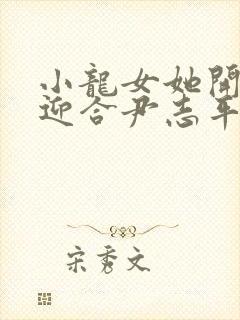 小龍女她開
迎合尹志平
宋秀文